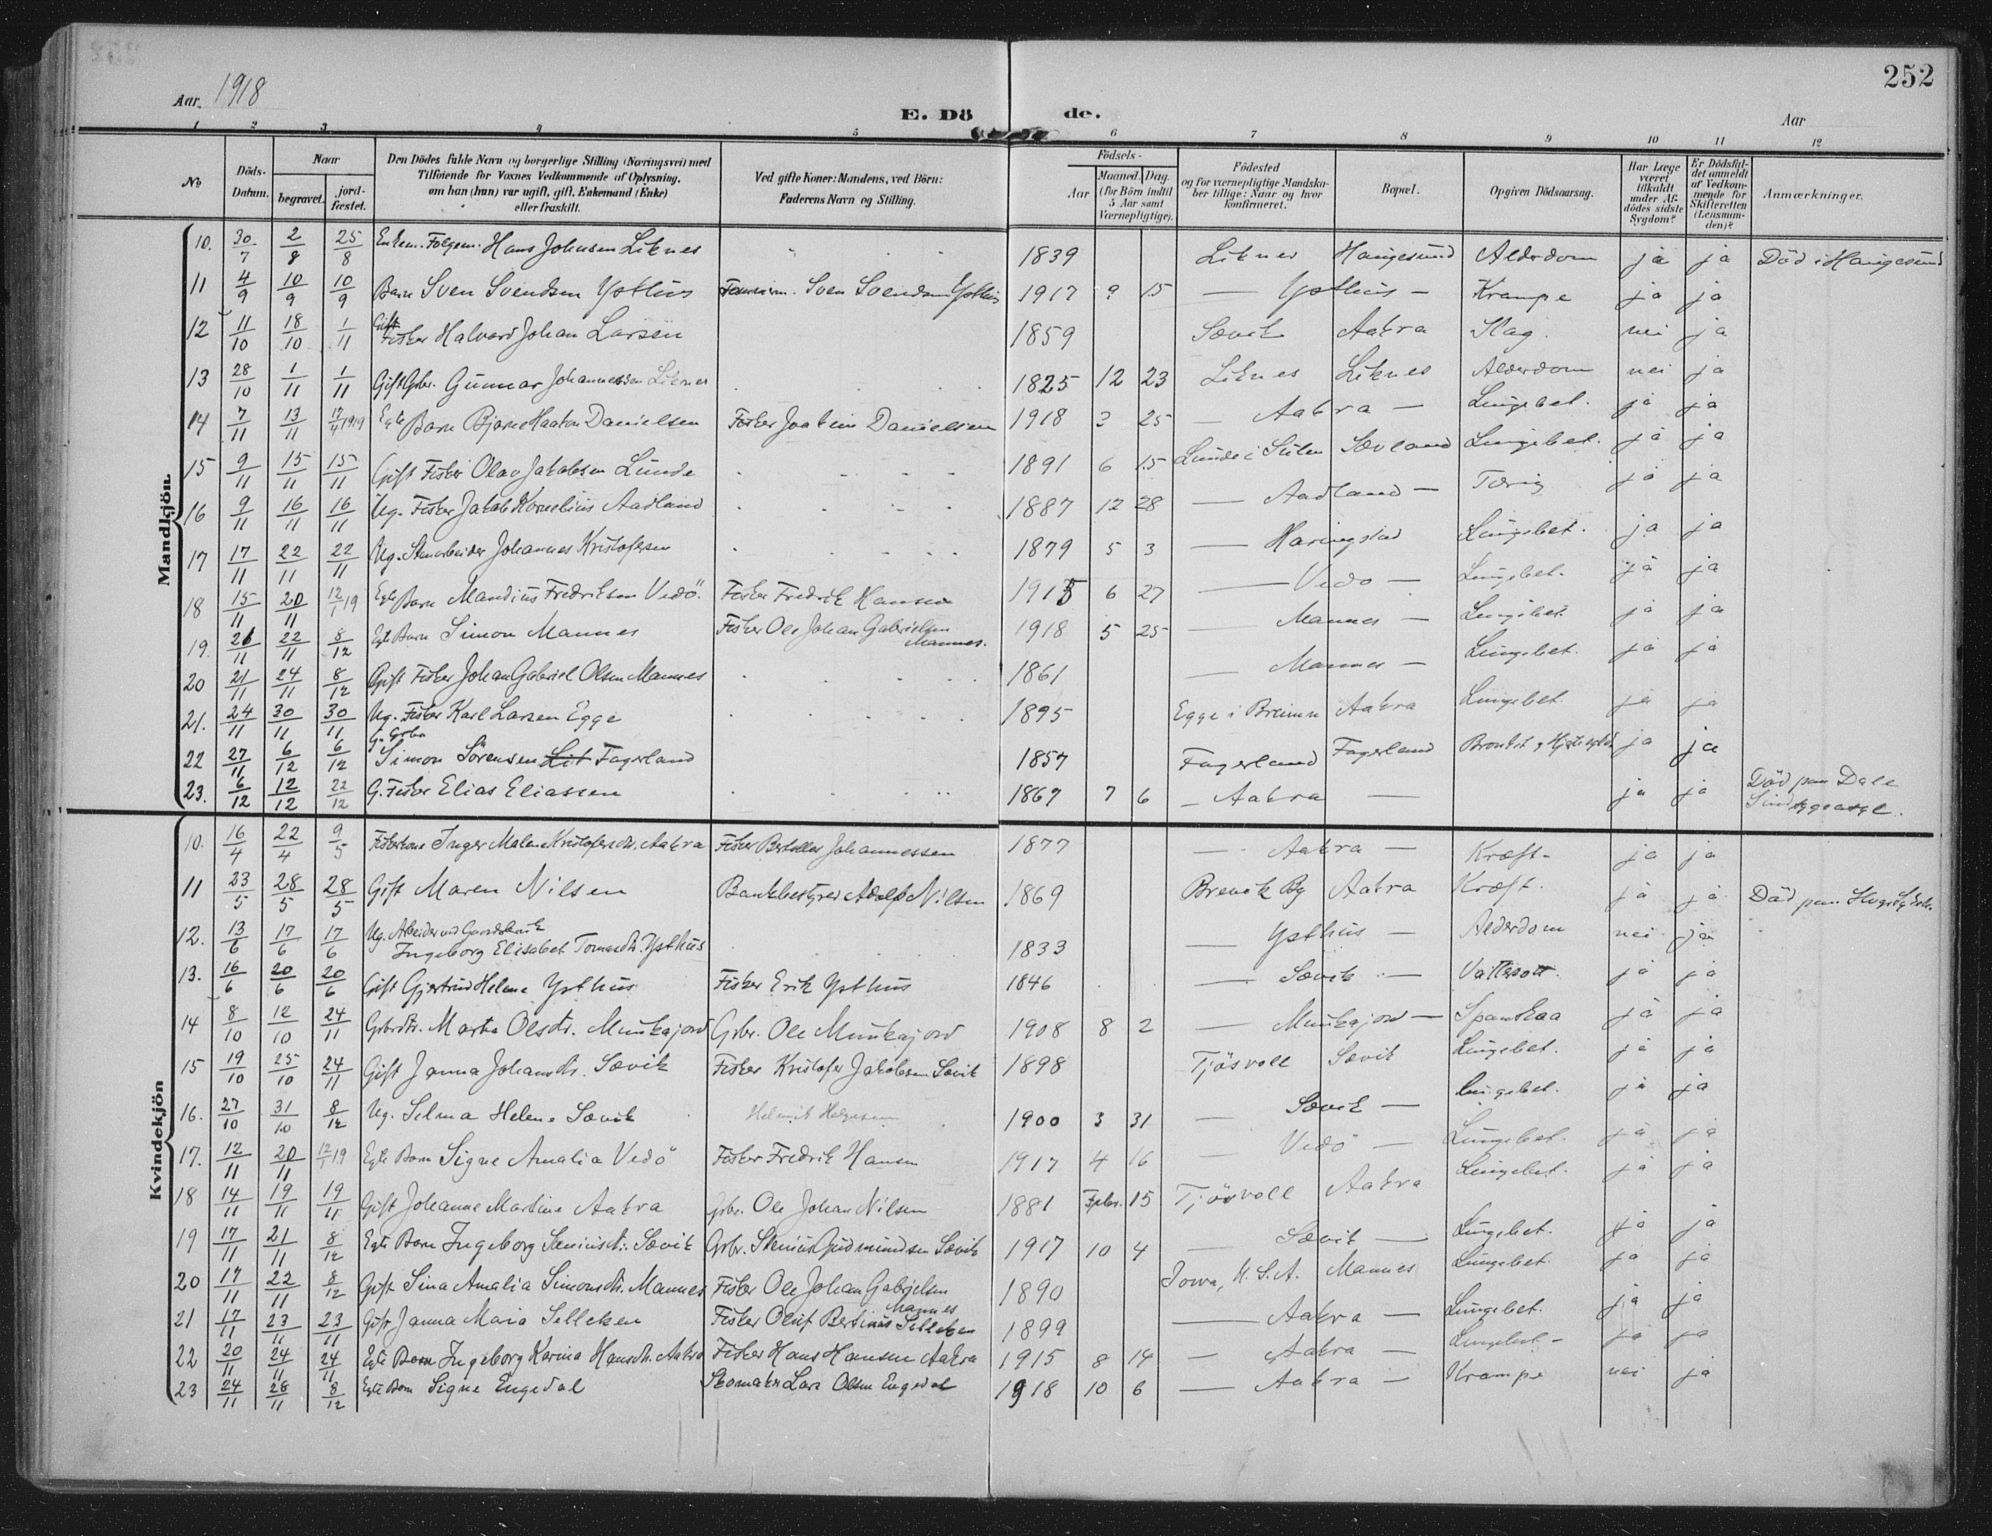 252
Aar. 1918
E. Döde.
Aar
1 2 3 4 5 6 7 8 9 10 11 12
No
Döds-Datum.
Naar
begravet.
jord-fæstet.
Den Dödes fulde Navn og borgerlige Stilling (Næringsvei) med Tilföiende for Voxnes Vedkommende af Oplysning, om han (hun) var ugift, gift, Enkemand (Enke) eller fraskilt.
Ved gifte Koner: Mandens, ved Börn: Faderens Navn og Stilling.
Födsels-
Aar
Maaned. Dag. (for Börn indtil 5 Aar samt Værnepligtige).
Födested og for værnepligtige Mandskaber tillige: Naar og hvor konfirmeret.
Bopæl.
Opgiven Dödsaarsag.
Har Læge været tilkaldt under Afdödes sidste Sygdom?
Er Dödsfaldet anmeldt af Vedkommende for Skifteretten (Lensmanden)?
Anmærkninger.
Mandkjön.
10. 30/7 2/8 25/8 Enkem. Folgem. Hans Johnsen Liknes 1839 Liknes Haugesund Alderdom ja ja Död i Haugesund
11 4/9 10/9 10/9 Barn Sven Svendsen Ysthus Sven Svendsen Ysthus 1917 9 15 — Ysthus — Krampe ja ja
12 11/10 18/10 1/11 Gift Fisker Halvard Johan Larsen 1859 Sævik Aakra Slag. nei ja
13 28/10 1/11 1/11 Gift Gbr. Gunnar Johannessen Liknes 1825 12 23 Liknes Liknes Alderdom nei ja
14 7/11 13/11 17/4 1919 Egte Barn Bjarne Haakon Danielsen Fisker Joakim Danielsen 1918 3 25 — Aakra — Lungebet. ja ja
15 9/11 15/11 15/11 Gift Fisker Olav Jakobsen Lunde 1891 6 15 Lunde i Sulen Sævland Lungebet. ja ja
16 9/11 16/11 16/11 Ug. Fisker Jakob Kornelius Aadland 1887 12 28 — Aadland — Tæring ja ja
17 17/11 22/11 22/11 Ug. Stenarbeider Johannes Kristofersen 1879 5 3 — Haringstad Lungebet. ja ja
18 15/11 20/11 12/1 19 Egte Barn Mandius Fredriksen Vedö. Fisker Fredrik Hansen 1915 6 27 — Vedö — Lungebet. ja ja
19. 21/11 22/11 8/12 Egte Barn Simon Mannes Fisker Ole Johan Gabrielsen Mannes. 1918 5 25 — Mannes — Lungebet. ja ja
20 21/11 24/11 8/12 Gift Fisker Johan Gabriel Olsen Mannes 1861 — Mannes — Lungebet. ja ja
21. 24/11 30/11 30/11 Ug. Fisker Karl Larsen Egge 1895 Egge i Breimn Aakra Lungebet. ja ja
22 27/11 6/12 6/12 G. Gbr. Simon Sörensen Fagerland 1857 Fagerland Fagerland ja ja
23. 6/12 12/12 22/12 G. Fisker Elias Eliassen 1867 7 6 — Aakra — ja ja Död paa Dale Sindsygeasyl.
Kvindekjön
10. 16/4 22/4 9/5 Fiskerkone Inger Malene Kristofersdt. Aakra Fisker Johannessen 1877 — Aakra — Kræft — ja ja
11 23/5 28/5 28/5 Gift Maren Nilsen Bankbestyrer Adolf Nilsen 1869 Brevik By Aakra Kræft. ja ja
12. 13/6 17/6 17/6 Ug. Arbeider ved Gaardsbruk Ingeborg Elisabet Tomasdt. Ysthus 1833 — Ysthus — Alderdom nei ja
13. 16/6 20/6 20/6 Gift Gjertrud Helene Ysthus Fisker Erik Ysthus 1846 — Sævik — Vattersott. ja ja
14 8/10 12/10 24/11 Gbrdtr. Marta Olsdt. Munkajord Gbr. Ole Munkajord 1908 8 2 — Munkajord — Spanska ja ja
15 19/10 25/10 24/11 Gift Janna Johansdt. Sævik Fisker Kristofer Jakobsen Sævik 1898 Tjösvoll Sævik Lungebet. ja ja
16. 27/10 31/10 8/12 Ug. Selma Helene Sævik 1900 3 31 — Sævik — Lungebet. ja ja
17. 12/11 20/11 12/1 19 Egte Barn Signe Amalia Vedö Fisker Fredrik Hansen 1917 4 16 — Vedö — Lungebet. ja ja
18 14/11 19/11 19/11 Gift Johanne Martine Aakra Gbr. Ole Johan Nilsen 1881 Febr. 15 Tjösvoll Aakra Lungebet. ja ja
19 17/11 21/11 8/12 Egte Barn Ingeborg Seniusdt. Sævik Gbr. Stenius Gudmundsen Sævik 1917 10 4 — Sævik — Lungebet. ja ja
20 17/11 22/11 8/12 Gift Sina Amalia Simonsdt. Mannes Fisker Ole Johan Gabrielsen Mannes 1890 Iowa, U.S.A. Mannes Lungebet. ja ja
21 17/11 23/11 23/11 Gift Janna Maria Selleken Fisker Oluf Bertinus Selleken 1899 — Aakra — Lungebet. ja ja
22 20/11 24/11 24/11 Egte Barn Ingeborg Karina Hansdt. Aakra Fisker Hans Hansen Aakra 1915 8 14 — Aakra — Lungebet — ja ja
23 24/11 28/11 8/12 Egte Barn Signe Engedal Skomaker Lars Olsen Engedal 1918 10 6 — Aakra — Krampe nei ja